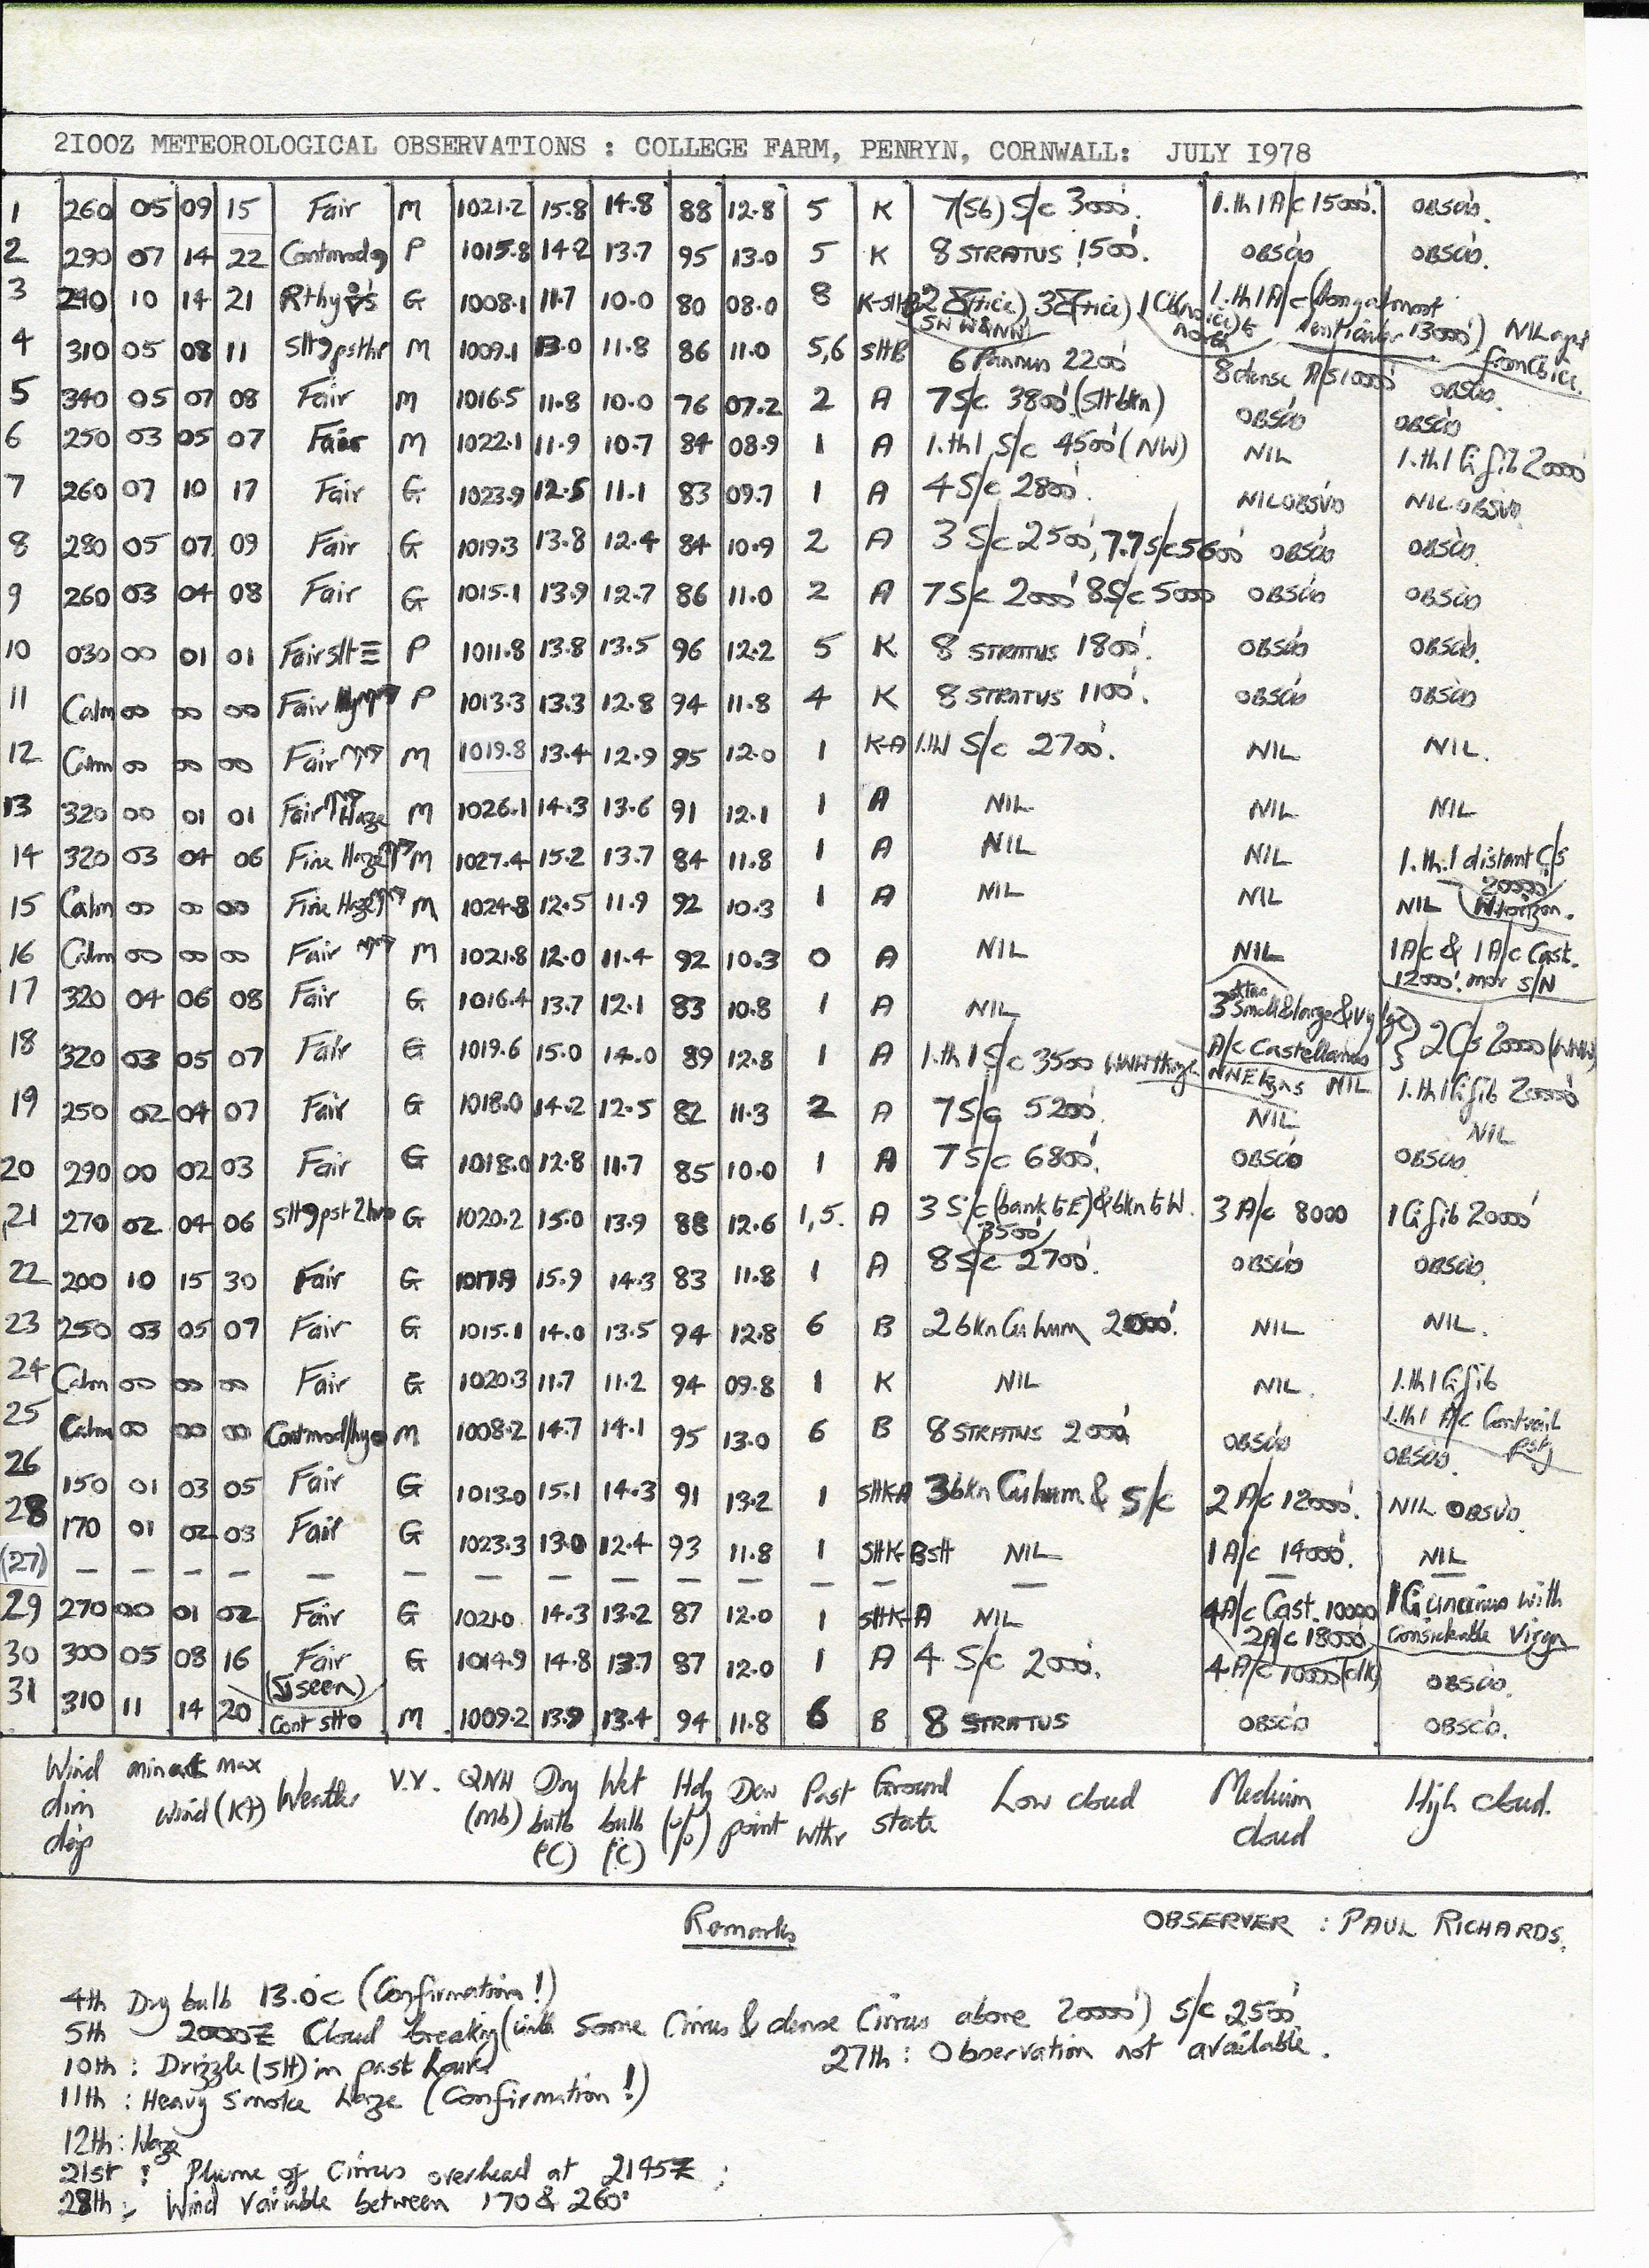 2100Z METEOROLOGICAL OBSERVATIONS : COLLEGE FARM, PENRYN, CORNWALL: JULY 1978
1 260 05 09 15 Fair M 1021.2 15.8 14.8 88 12.8 5 K 7(Sb) S/c 3000'. 1.th1 A/c 15000'. OBSCD.
2 290 07 14 22 Contmod P 1015.8 14.2 13.7 95 13.0 5 K 8 STRATUS 1500'. OBSCD OBSCD.
3 290 10 14 21 G 1008.1 11.7 10.0 80 08.0 8 1.th1 A/c 13000') NIL
SW W&NW north
4 310 05 08 11 M 1009.1 13.0 11.8 86 11.0 5,6 SltB 6 Pannus 2200' 8 dense A/S 10000' OBSCD.
5 340 05 07 08 Fair M 1016.5 11.8 10.0 76 07.2 2 A 7 S/c 3800' (Slt bkn) OBSCD OBSCD
6 250 03 05 07 Fair M 1022.1 11.9 10.7 84 08.9 1 A 1.th1 S/c 4500' (NW) NIL 1.th1 Ci fib 20000'
7 260 07 10 17 Fair G 1023.9 12.5 11.1 83 09.7 1 A 4 S/c 2800'. NIL OBSVD NIL OBSVD.
8 280 05 07 09 Fair G 1019.3 13.8 12.4 84 10.9 2 A 3 S/c 2500', 7.7 S/c 5600' OBSCD OBSCD.
9 260 03 04 08 Fair G 1015.1 13.9 12.7 86 11.0 2 A 7 S/c 2000' 8 S/c 5000 OBSCD OBSCD
10 030 00 01 01 Fair slt ≡ P 1011.8 13.8 13.5 96 12.2 5 K 8 STRATUS 1800'. OBSCD OBSCD.
11 Calm 00 00 00 Fair P 1013.3 13.3 12.8 94 11.8 4 K 8 STRATUS 1100'. OBSCD OBSCD
12 Calm 00 00 00 Fair M 1019.8 13.4 12.9 95 12.0 1 K-A 1.th1 S/c 2700'. NIL NIL.
13 320 00 01 01 Fair Haze M 1026.1 14.3 13.6 91 12.1 1 A NIL NIL NIL
14 320 03 04 06 Fine Haze M 1027.4 15.2 13.7 84 11.8 1 A NIL NIL 1.th.1 distant C/s
20000' W horizon.
15 Calm 00 00 00 Fine Haze M 1024.8 12.5 11.9 92 10.3 1 A NIL NIL NIL
16 Calm 00 00 00 Fair M 1021.8 12.0 11.4 92 10.3 0 A NIL NIL 1 A/c & 1 A/c Cast.
12000'. mov S/N
17 320 04 06 08 Fair G 1016.4 13.7 12.1 83 10.8 1 A NIL 3 small & large & vy lge
A/c Castellanus 2 C/s 20000 (WNW)
18 320 03 05 07 Fair G 1019.6 15.0 14.0 89 12.8 1 A 1.th1 S/c 3500 NIL 1.th1 Ci fib 20000'
19 250 02 04 07 Fair G 1018.0 14.2 12.5 82 11.3 2 A 7 S/c 5200'. NIL NIL
20 290 00 02 03 Fair G 1018.0 12.8 11.7 85 10.0 1 A 7 S/c 6800'. OBSCD OBSCD
21 270 02 04 06 G 1020.2 15.0 13.9 88 12.6 1,5. A 3 S/c (bank to E) & bkn to W. 3 A/c 8000 1 Ci fib 20000'
3500'
22 200 10 15 30 Fair G 1017.9 15.9 14.3 83 11.8 1 A 8 S/c 2700'. OBSCD OBSCD.
23 250 03 05 07 Fair G 1015.1 14.0 13.5 94 12.8 6 B 2 bkn Cu hum 2000'. NIL NIL.
24 Calm 00 00 00 Fair G 1020.3 11.7 11.2 94 09.8 1 K NIL NIL. 1.th1 Ci fib
1.th1 A/c Contrail
25 Calm 00 00 00 M 1008.2 14.7 14.1 95 13.0 6 B 8 STRATUS 2000' OBSCD OBSCD.
26 150 01 03 05 Fair G 1013.0 15.1 14.3 91 13.2 1 SltK-A 3 bkn Cu hum & S/c 2 A/c 12000'. NIL OBSVD.
28 170 01 02 03 Fair G 1023.3 13.0 12.4 93 11.8 1 SltK-BSlt NIL 1 A/c 14000'. NIL
(27) — — — — — — — — — — — — — — — —
29 270 00 01 02 Fair G 1021.0 14.3 13.2 87 12.0 1 SltK-A NIL 4 A/c Cast. 10000 1 Ci uncinus with
2 A/c 18000' considerable Virga
30 300 05 08 16 Fair G 1014.9 14.8 13.7 87 12.0 1 A 4 S/c 2000'. 4 A/c 10000' (dk) OBSCD.
seen)
31 310 11 14 20 Cont slt M 1009.2 13.9 13.4 94 11.8 6 B 8 STRATUS OBSCD OBSCD.
Wind dirn degs min act max Wind (Kt) Weather V.V. QNH (mb) Dry bulb (°C) Wet bulb (°C) Hdy (%) Dew point Past Wthr Ground state Low cloud Medium cloud High cloud.
Remarks
OBSERVER : PAUL RICHARDS.
4th Dry bulb 13.0c (Confirmation!)
5th 2000Z Cloud breaking (with some Cirrus & dense Cirrus above 20000') S/c 2500'.
10th : Drizzle (Slt) in past hour
27th : Observation not available.
11th : Heavy Smoke haze (Confirmation!)
12th : Haze
21st : Plume of Cirrus overhead at 2145Z ;
28th : Wind Variable between 170 & 260°